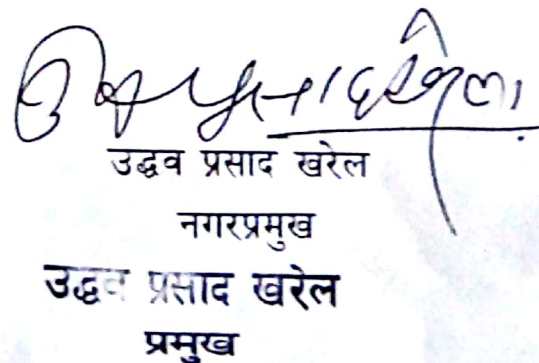 उद्धव प्रसाद खरेल
नगरप्रमुख
उद्धव प्रसाद खरेल
प्रमुख